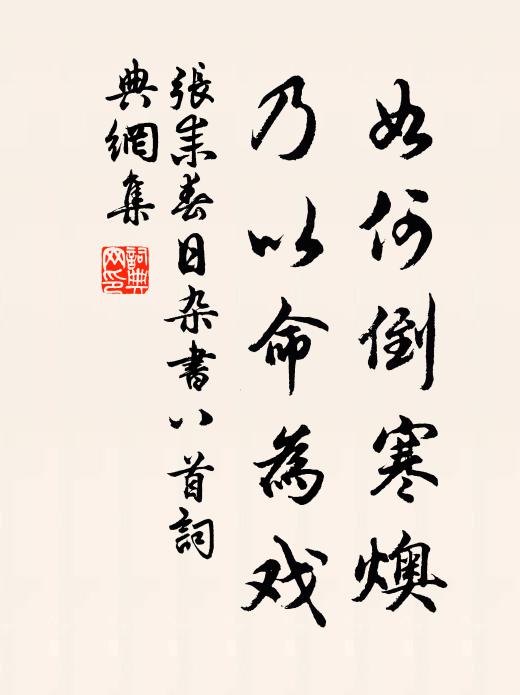 如何倒寒燠
乃以命為戏
張耒春日杂書八首詞
典網集
詞典
网印